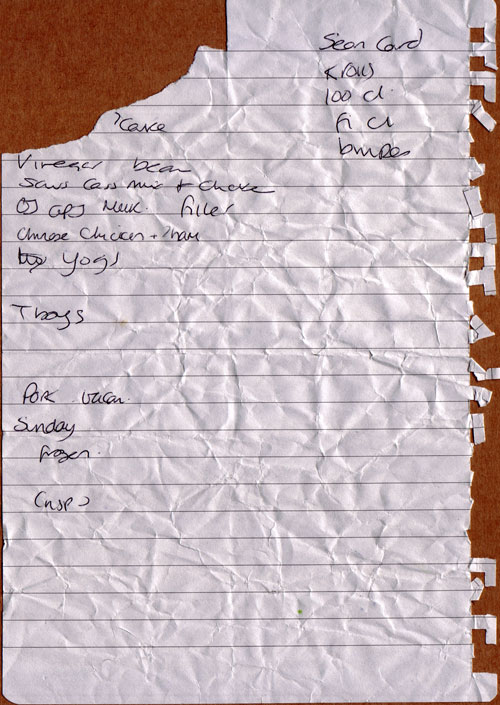 Sean Card
K rolls
100 cl
fi cl
bmps
? Cake
Vinegar bean
Saus Cass mix + chicke
OJ GPJ Milk. Filler
Chinese Chicken + ham
Yogs
T bags
Pork bacon.
Sunday
frozen.
Crisps